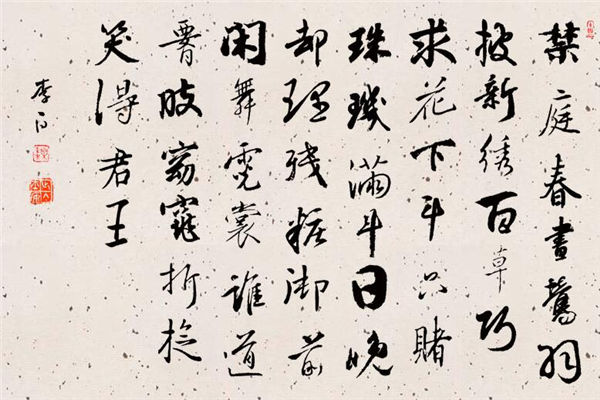 禁庭春晝鶯羽
披新綉百草巧
求花下斗只賭
珠璣滿斗日晚
却理殘粧御前
閑舞霓裳誰道
腰肢窈窕折旋
笑得君王
李白